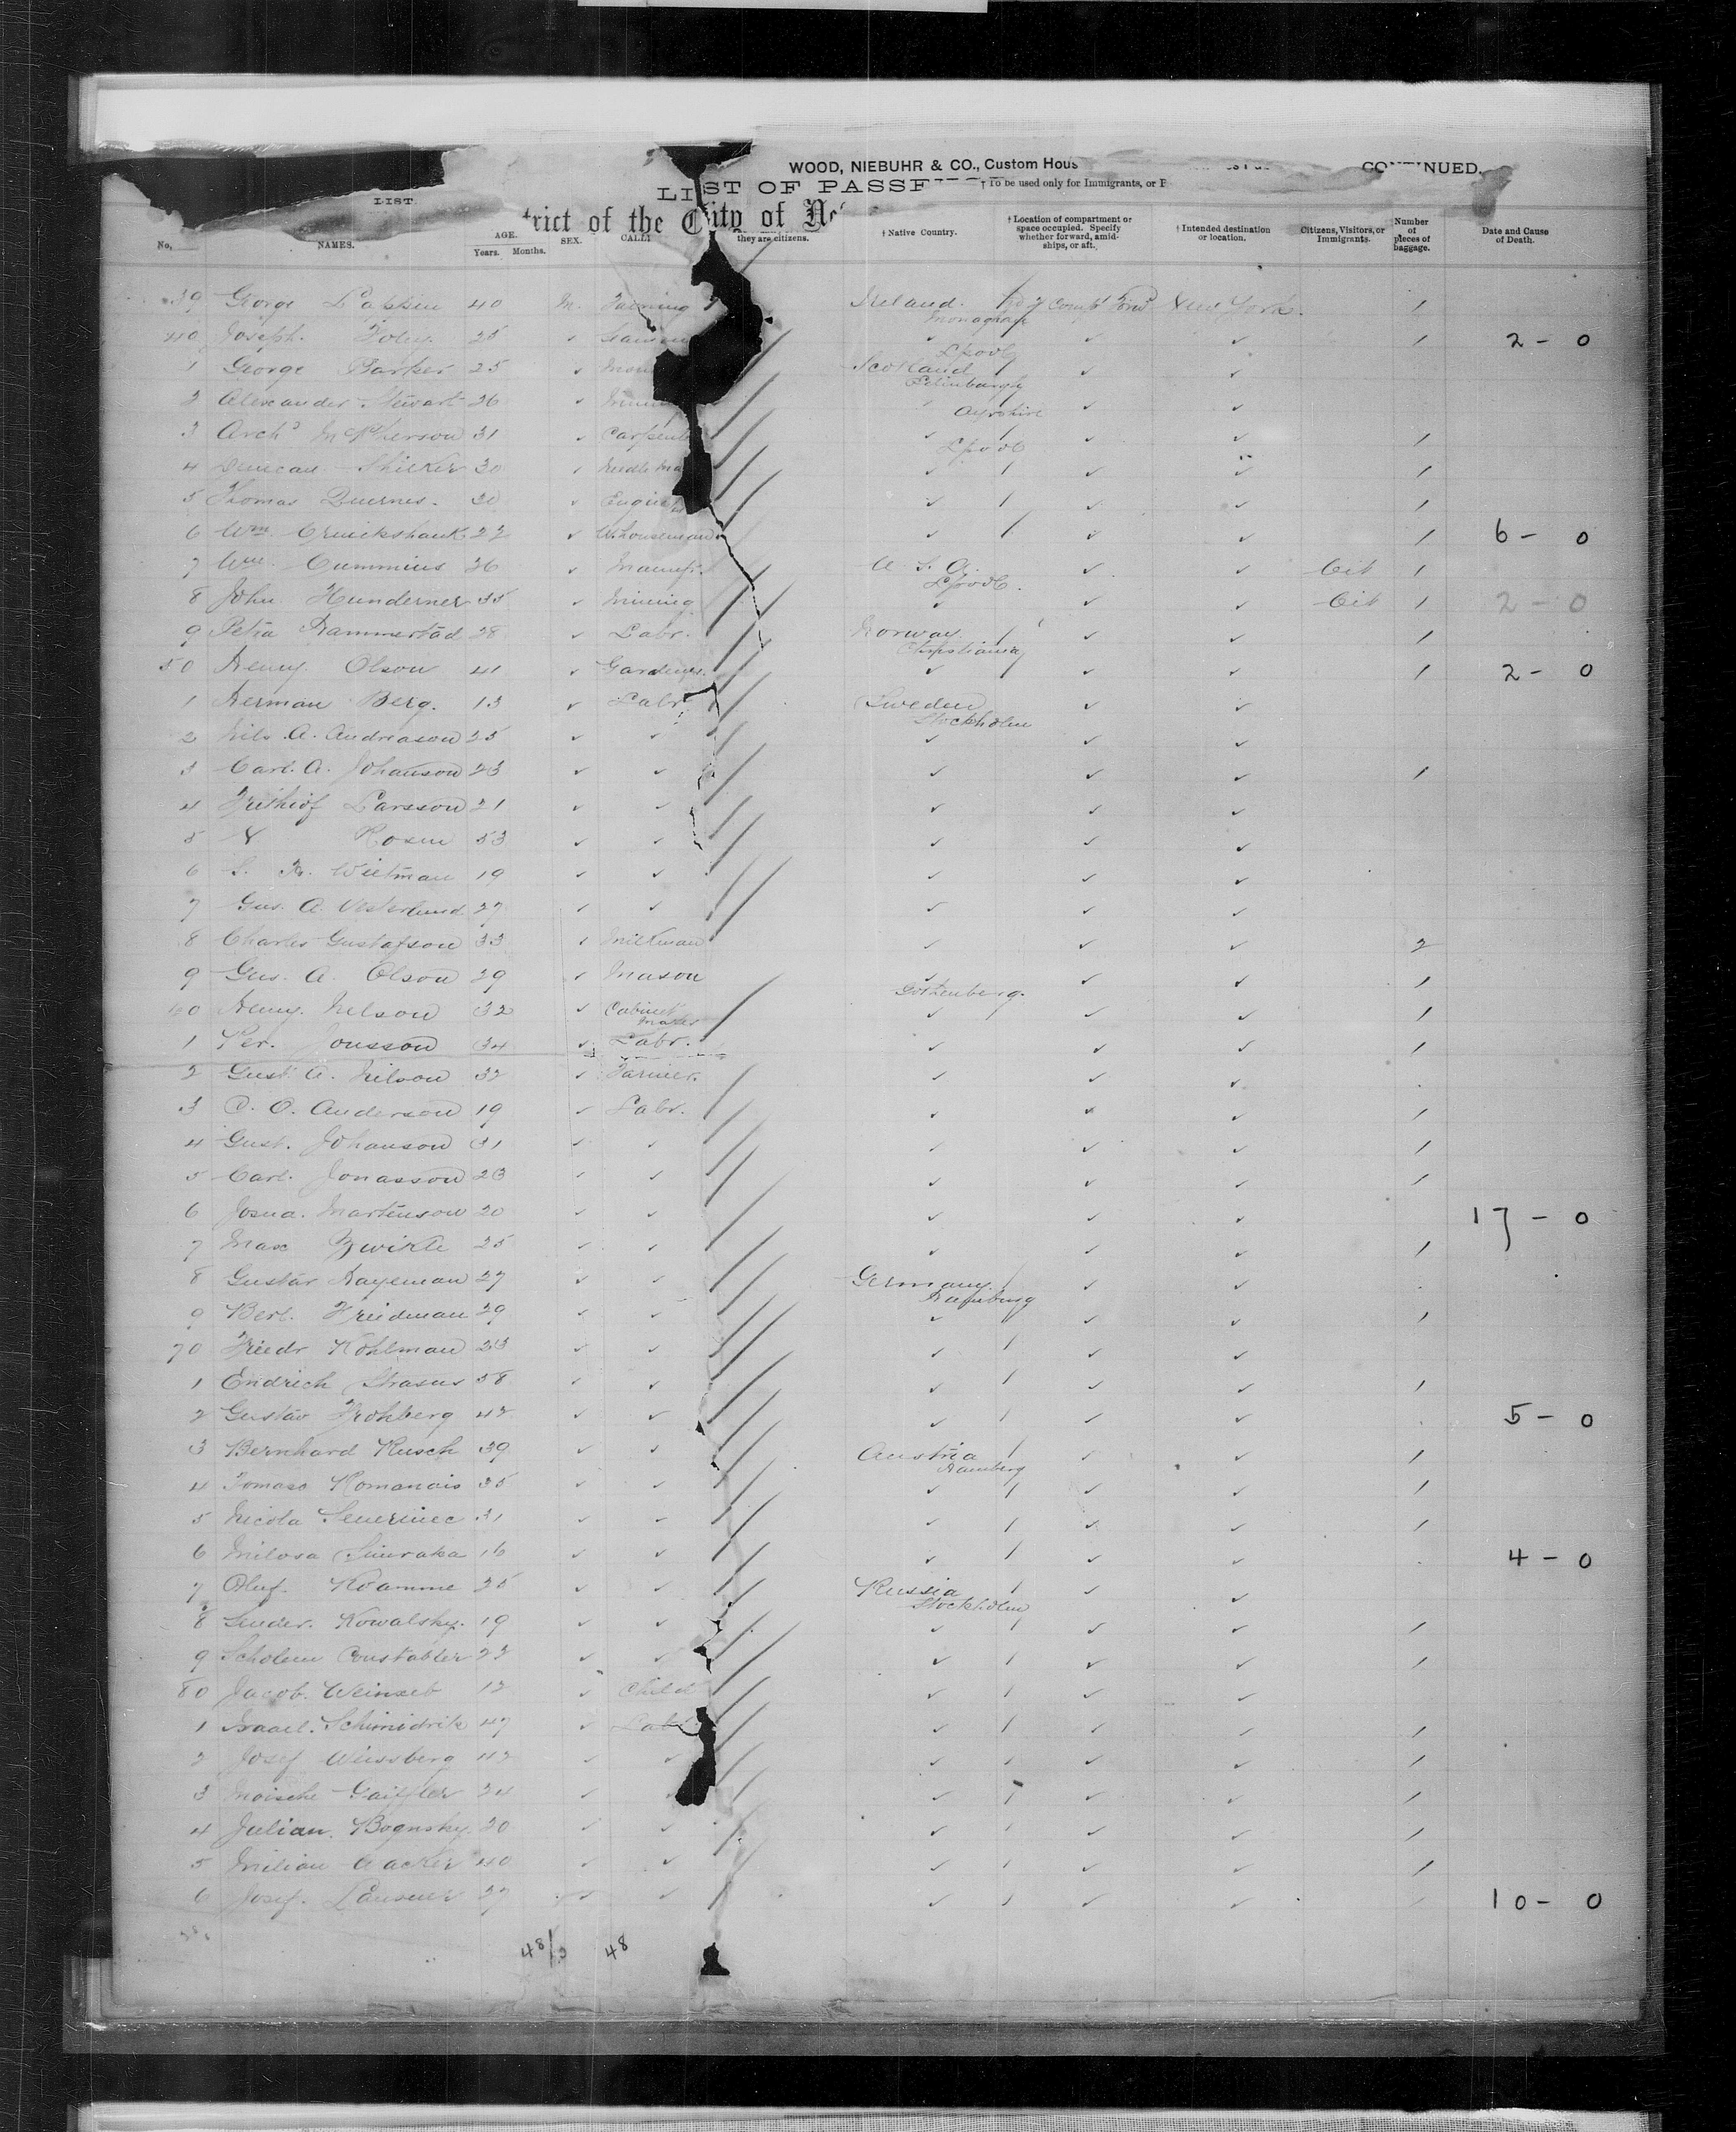 WOOD, NIEBUHR & CO., Custom Hous CONTINUED.
LIST OF PASSE † To be used only for Immigrants, or P
LIST.
trict of the City of Ne
No. NAMES. AGE. Years. Months. SEX. CALLI they are citizens. † Native Country. † Location of compartment or space occupied. Specify whether forward, amidships, or aft. † Intended destination or location. Citizens, Visitors, or Immigrants. Number of pieces of baggage. Date and Cause of Death.
39 George 40 M. Farming Ireland. Compt New York. 1
Monaghan
40 Joseph. 25 ✓ ✓ ✓ ✓ 1 2 - 0
L'pool
1 George Parker 25 ✓ Scotland / ✓ ✓
Edinburgh
2 Alexander Stewart 26 ✓ ✓ ✓
Ayrshire
3 Archd McPherson 31 ✓ Carpent ✓ / ✓ ✓ 1
L'pool
4 Duncan 30 ✓ ✓ / ✓ ✓ 1
5 Thomas 30 ✓ Engine ✓ / ✓ ✓ 1
6 Wm. Cruickshank 22 ✓ W.houseman ✓ / ✓ ✓ 1 6 - 0
7 Wm. Cummins 36 ✓ U. S. A. ✓ ✓ Cit 1
L'pool.
8 John Hunderner 35 ✓ Mining ✓ ✓ ✓ Cit 1 2 - 0
9 28 ✓ Labr. Norway / ✓ ✓ 1
Christiania
50 Henry Olson 41 ✓ Gardener. ✓ / ✓ ✓ 1 2 - 0
1 Herman Berg. 13 ✓ Labr Sweden ✓ ✓
Stockholm
2 Nils. A. Andreason 25 ✓ ✓ ✓ ✓ ✓
3 Carl. A. Johanson 23 ✓ ✓ ✓ ✓ ✓ 1
4 Frithiof Larsson 21 ✓ ✓ ✓ ✓ ✓
5 Rosen 53 ✓ ✓ ✓ ✓ ✓
6 Wietman 19 ✓ ✓ ✓ ✓ ✓
7 Gus. A. Vesterlund 27 ✓ ✓ ✓ ✓ ✓
8 Charles Gustafson 33 ✓ Milkman ✓ ✓ ✓ 2
9 Gus. A. Olson 29 ✓ Mason ✓ ✓ ✓ 1
Gothenberg.
60 Henry. Nelson 32 ✓ Cabinet Maker ✓ ✓ ✓ 1
1 Per. Jonsson 34 ✓ Labr. ✓ ✓ ✓ 1
2 Gust. A. Nilson 32 ✓ Farmer. ✓ ✓ ✓
3 C. O. Anderson 19 ✓ Labr. ✓ ✓ ✓ 1
4 Gust. Johanson 31 ✓ ✓ ✓ ✓ ✓ 1
5 Carl. Jonasson 23 ✓ ✓ ✓ ✓ ✓ 1
6 Josua. Martenson 20 ✓ ✓ ✓ ✓ ✓ 17 - 0
7 Max Zwirle 25 ✓ ✓ ✓ ✓ ✓ 1
8 Gustav Hayeman 27 ✓ ✓ Germany / ✓ ✓
Hamburg
9 Bert. Friedman 29 ✓ ✓ ✓ ✓ ✓ 1
70 Friedr Kohlman 23 ✓ ✓ ✓ / ✓ ✓
1 Endrich Strasus 58 ✓ ✓ ✓ / ✓ ✓ 1
2 Gustav Frohberg 42 ✓ ✓ ✓ / ✓ ✓ 5 - 0
3 Bernhard Rusch 39 ✓ ✓ Austria / ✓ ✓ 1
Hamberg
4 Tomaso Romanais 35 ✓ ✓ ✓ / ✓ ✓ 1
5 Nicola 31 ✓ ✓ ✓ / ✓ ✓ 1
6 Milosa 16 ✓ ✓ ✓ / ✓ ✓ 4 - 0
7 Oluf. 25 ✓ ✓ Russia / ✓ ✓
Stockholm
8 Sender. Kowalsky. 19 ✓ ✓ ✓ / ✓ ✓ 1
9 Scholem Constabler 22 ✓ ✓ ✓ / ✓ ✓ 1
80 Jacob. 12 ✓ Child ✓ / ✓ ✓
1 Israel. Schimidrik 47 ✓ Lab ✓ / ✓ ✓ 1
2 Josef Weissberg 42 ✓ ✓ ✓ / ✓ ✓ 1
3 Moische Gaiffler 24 ✓ ✓ / ✓ ✓ 1
4 Julian. Bognsky. 20 ✓ ✓ ✓ / ✓ ✓ 1
5 Milian Hacker 40 ✓ ✓ ✓ / ✓ ✓ 1
6 Josef. Lausner 27 ✓ ✓ ✓ / ✓ ✓ 10 - 0
48/0 48